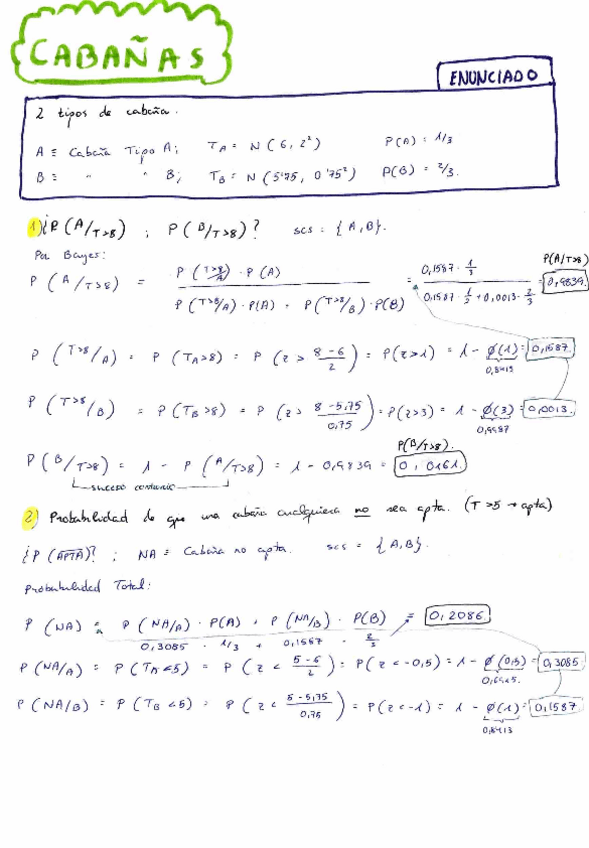 CABAÑAS
ENUNCIADO
2 tipos de cabaña.
A ≡ Cabaña Tipo A; T_A = N(6, 2²) P(A) = 1/3
B ≡ " " B; T_B = N(5'75, 0'75²) P(B) = 2/3.
1) ¿P(A/T>8) ; P(B/T>8)? scs = {A,B}.
Por Bayes:
P(A/T>8) = P(T>8/A) · P(A) / P(T>8/A) · P(A) + P(T>8/B) · P(B) = 0,1587 · 1/3 / 0,1587 · 1/3 + 0,0013 · 2/3 = P(A/T>8) 0,9839.
P(T>8/A) = P(T_A>8) = P(z > 8-6/2) = P(z>1) = 1 - Ø(1) = 0,1587.
0,8413
P(T>8/B) = P(T_B>8) = P(z > 8-5,75/0,75) = P(z>3) = 1 - Ø(3) = 0,0013.
0,9987
P(B/T>8).
P(B/T>8) = 1 - P(A/T>8) = 1 - 0,9839 = 0,0161.
suceso contrario
2) Probabilidad de que una cabaña cualquiera no sea apta. (T>5 → apta)
¿P(APTA)? ; NA = Cabaña no apta. scs = {A,B}.
Probabilidad Total:
P(NA) = P(NA/A) · P(A) + P(NA/B) · P(B) = 0,2086.
0,3085 · 1/3 + 0,1587 · 2/3
P(NA/A) = P(T_A<5) = P(z < 5-6/2) = P(z<-0,5) = 1 - Ø(0,5) = 0,3085
0,6915.
P(NA/B) = P(T_B<5) = P(z < 5-5,75/0,75) = P(z<-1) = 1 - Ø(1) = 0,1587.
0,8413